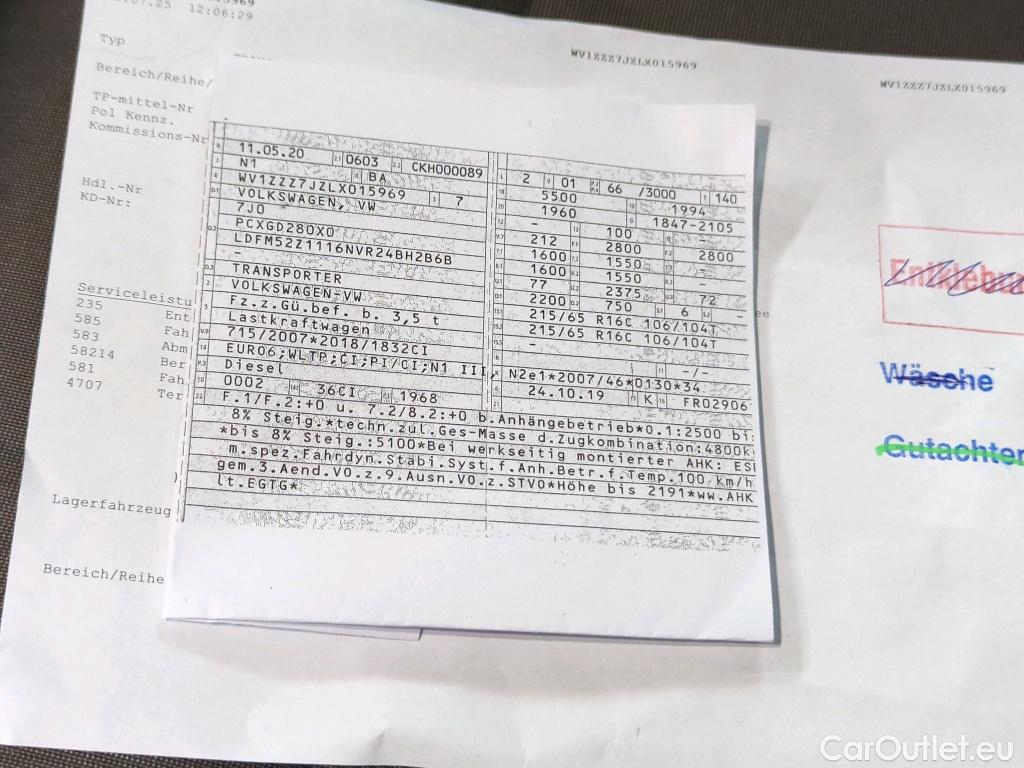 .07.25 12:06:29
WV1ZZZ7JZLX015969
WV1ZZZ7JZLX015969
Typ
Bereich/Reihe/
TP-mittel-Nr
Pol Kennz.
Kommissions-Nr
Hdl.-Nr
KD-Nr:
Serviceleistu
235 Ent
585 Fah
583 Abm
58214 Ber
581 Fah
4707 Ter
Lagerfahrzeug
Bereich/Reihe
11.05.20 0603 CKH000089
N1 BA
WV1ZZZ7JZLX015969 7
VOLKSWAGEN, VW
7J0
PCXGD280X0
LDFM52Z1116NVR24BH2B6B
-
TRANSPORTER
VOLKSWAGEN-VW
Fz.z.Gü.bef. b. 3,5 t
Lastkraftwagen
715/2007*2018/1832CI
EURO6;WLTP;CI;PI/CI;N1 III
Diesel
0002 36CI 1968
2 01 66 /3000 140
5500 1994
1960 1847-2105
- 100 -
212 2800 2800
1600 1550 -
1600 1550 -
77 2375 72
2200 750 6 -
215/65 R16C 106/104T
215/65 R16C 106/104T
-
-/-
N2e1*2007/46*0130*34
24.10.19 K FR02906
F.1/F.2:+0 u. 7.2/8.2:+0 b.Anhängebetrieb*0.1:2500 bi
8% Steig.*techn.zul.Ges-Masse d.Zugkombination:4800k
*bis 8% Steig.:5100*Bei werkseitig montierter AHK: ES
m.spez.Fahrdyn.Stabi.Syst.f.Anh.Betr.f.Temp.100 km/h
gem.3.Aend.VO.z.9.Ausn.VO.z.STVO*Höhe bis 2191*ww.AHK
lt.EGTG*
Entklebu
Wäsche
Gutachten
CarOutlet.eu